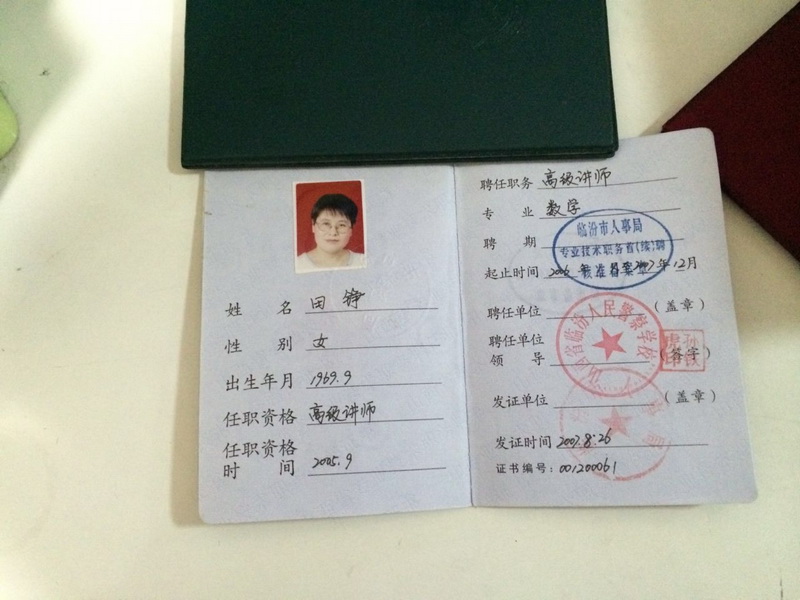 姓 名 田 铮
性 别 女
出生年月 1969.9
任职资格 高级讲师
任职资格
时 间 2005.9
聘任职务 高级讲师
专 业 数学
聘 期
临汾市人事局
专业技术职务首(续)聘
起止时间 2006 年 2007年12月
聘任单位 (盖章)
聘任单位
领 导 (签字)
省临汾人民警察学校
发证单位 (盖章)
发证时间 2007.8.26
证书编号: 001200061